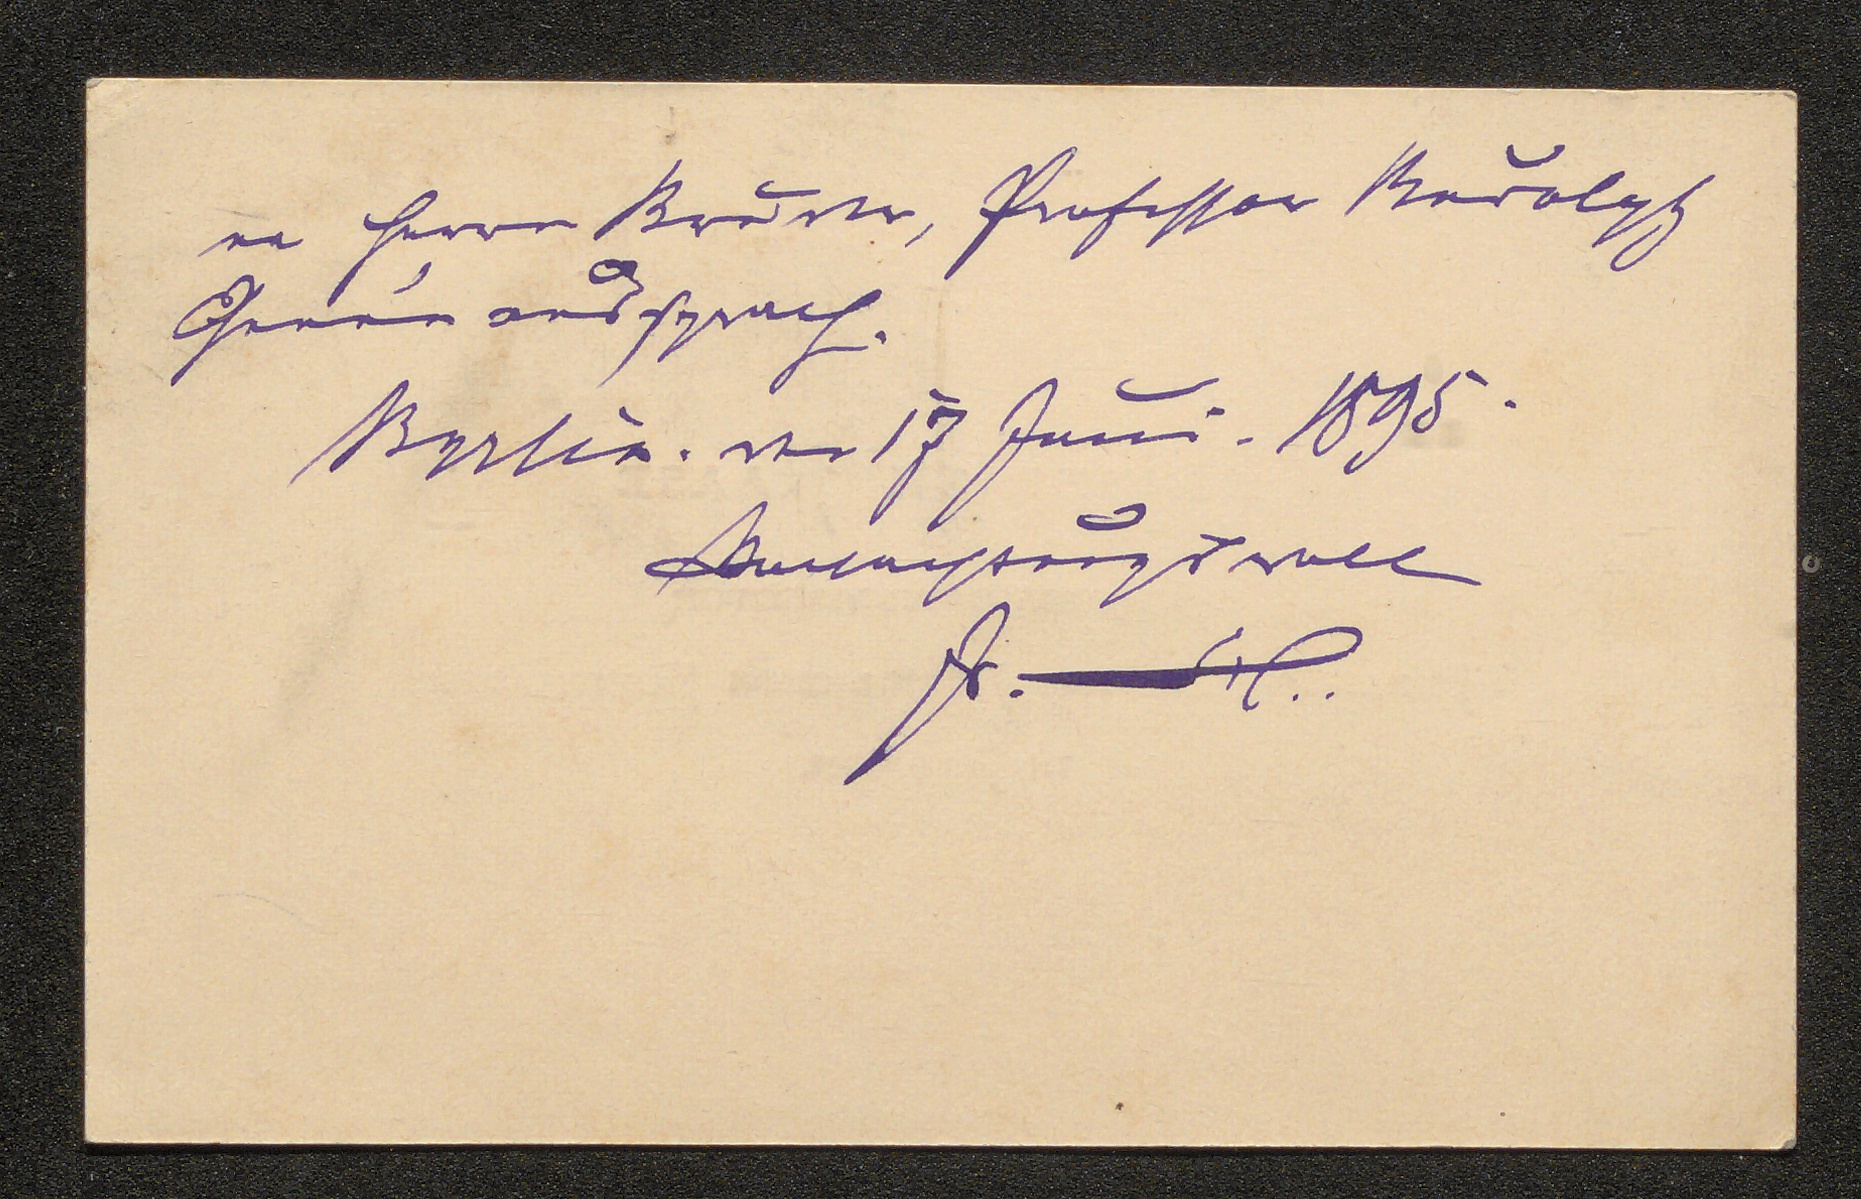 er Herrn Bruder, Professor Rudolph
Genée aussprach.
Berlin. den 17 Juni. 1895.
Hochachtungsvoll
Fr.